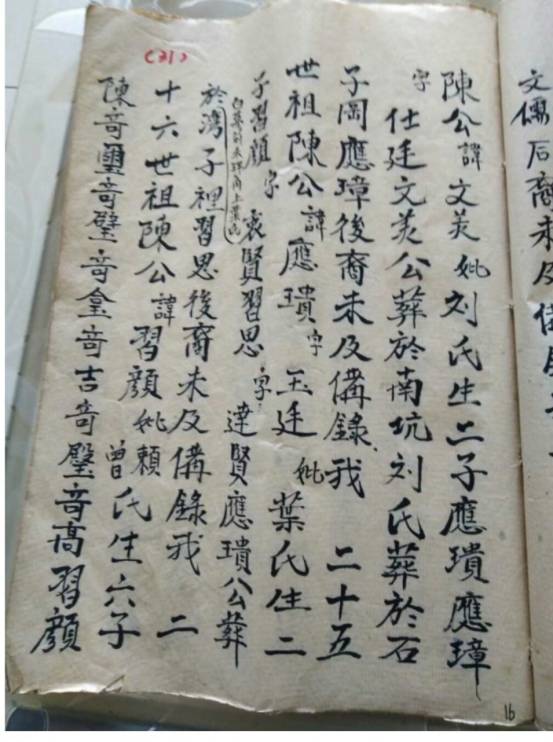 文儒后裔未及俻
陳公諱文英妣刘氏生二子應璝應璋
字仕廷文英公葬於南坑刘氏葬於石
子岡應璋後裔未及俻錄我二十五
世祖陳公諱應璝字玉廷妣葉氏生二
子習顔字衷賢習思字達賢應璝公葬
於鴻子裡習思後裔未及俻錄我二
十六世祖陳公諱習顔妣賴曾氏生六子
陳奇璽奇璧奇奇吉奇璧奇高習顔
(31)
16